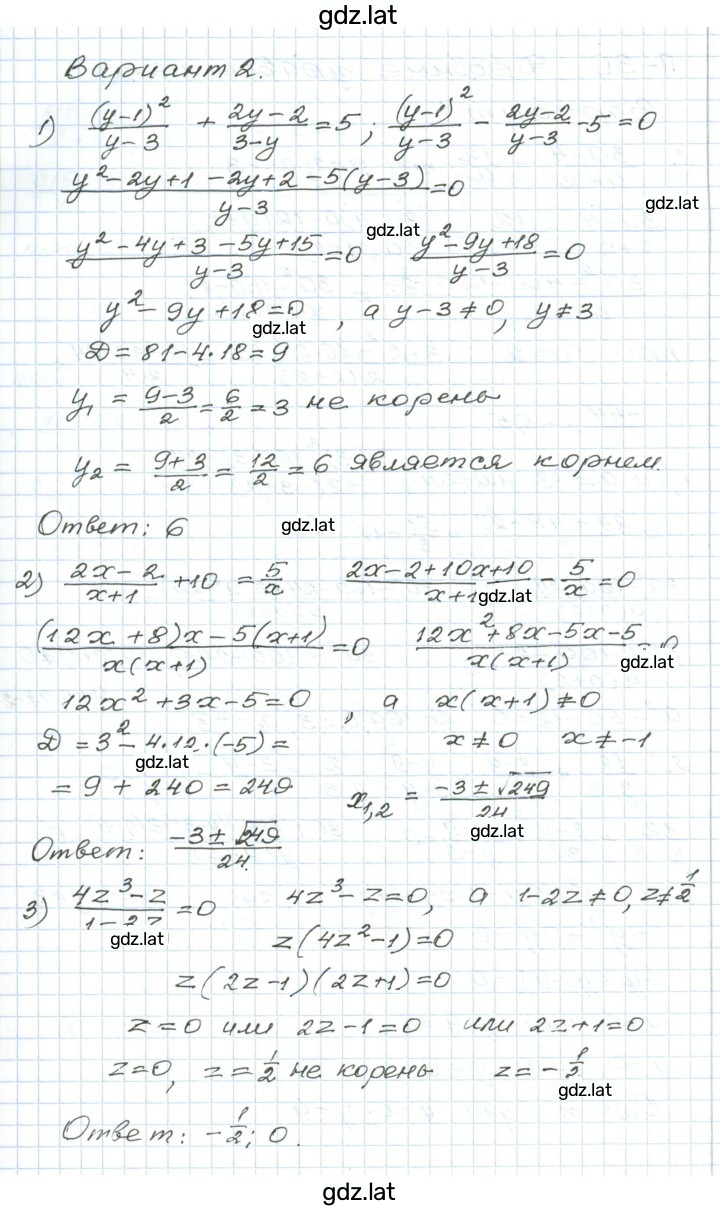 gdz.lat
Вариант 2.
1) (y-1)²/(y-3) + (2y-2)/(3-y) = 5; (y-1)²/(y-3) - (2y-2)/(y-3) - 5 = 0
(y²-2y+1-2y+2-5(y-3))/(y-3) = 0
gdz.lat
(y²-4y+3-5y+15)/(y-3) = 0 gdz.lat (y²-9y+18)/(y-3) = 0
y²-9y+18=0, а y-3≠0, y≠3
gdz.lat
D = 81-4·18=9
y₁ = (9-3)/2 = 6/2 = 3 не корень
y₂ = (9+3)/2 = 12/2 = 6 является корнем.
Ответ: 6 gdz.lat
2) (2x-2)/(x+1) + 10 = 5/x (2x-2+10x+10)/(x+1) - 5/x = 0
gdz.lat
((12x+8)x-5(x+1))/(x(x+1)) = 0 (12x²+8x-5x-5)/(x(x+1)) = 0
gdz.lat
12x²+3x-5=0, а x(x+1)≠0
D = 3²-4·12·(-5) = x≠0 x≠-1
gdz.lat
= 9 + 240 = 249 x₁,₂ = (-3±√249)/24
gdz.lat
Ответ: (-3±√249)/24.
3) (4z³-z)/(1-2z) = 0 4z³-z=0, а 1-2z≠0, z≠1/2
gdz.lat
z(4z²-1)=0
z(2z-1)(2z+1)=0
z=0 или 2z-1=0 или 2z+1=0
z=0, z=1/2 не корень z=-1/2
gdz.lat
Ответ: -1/2; 0.
gdz.lat